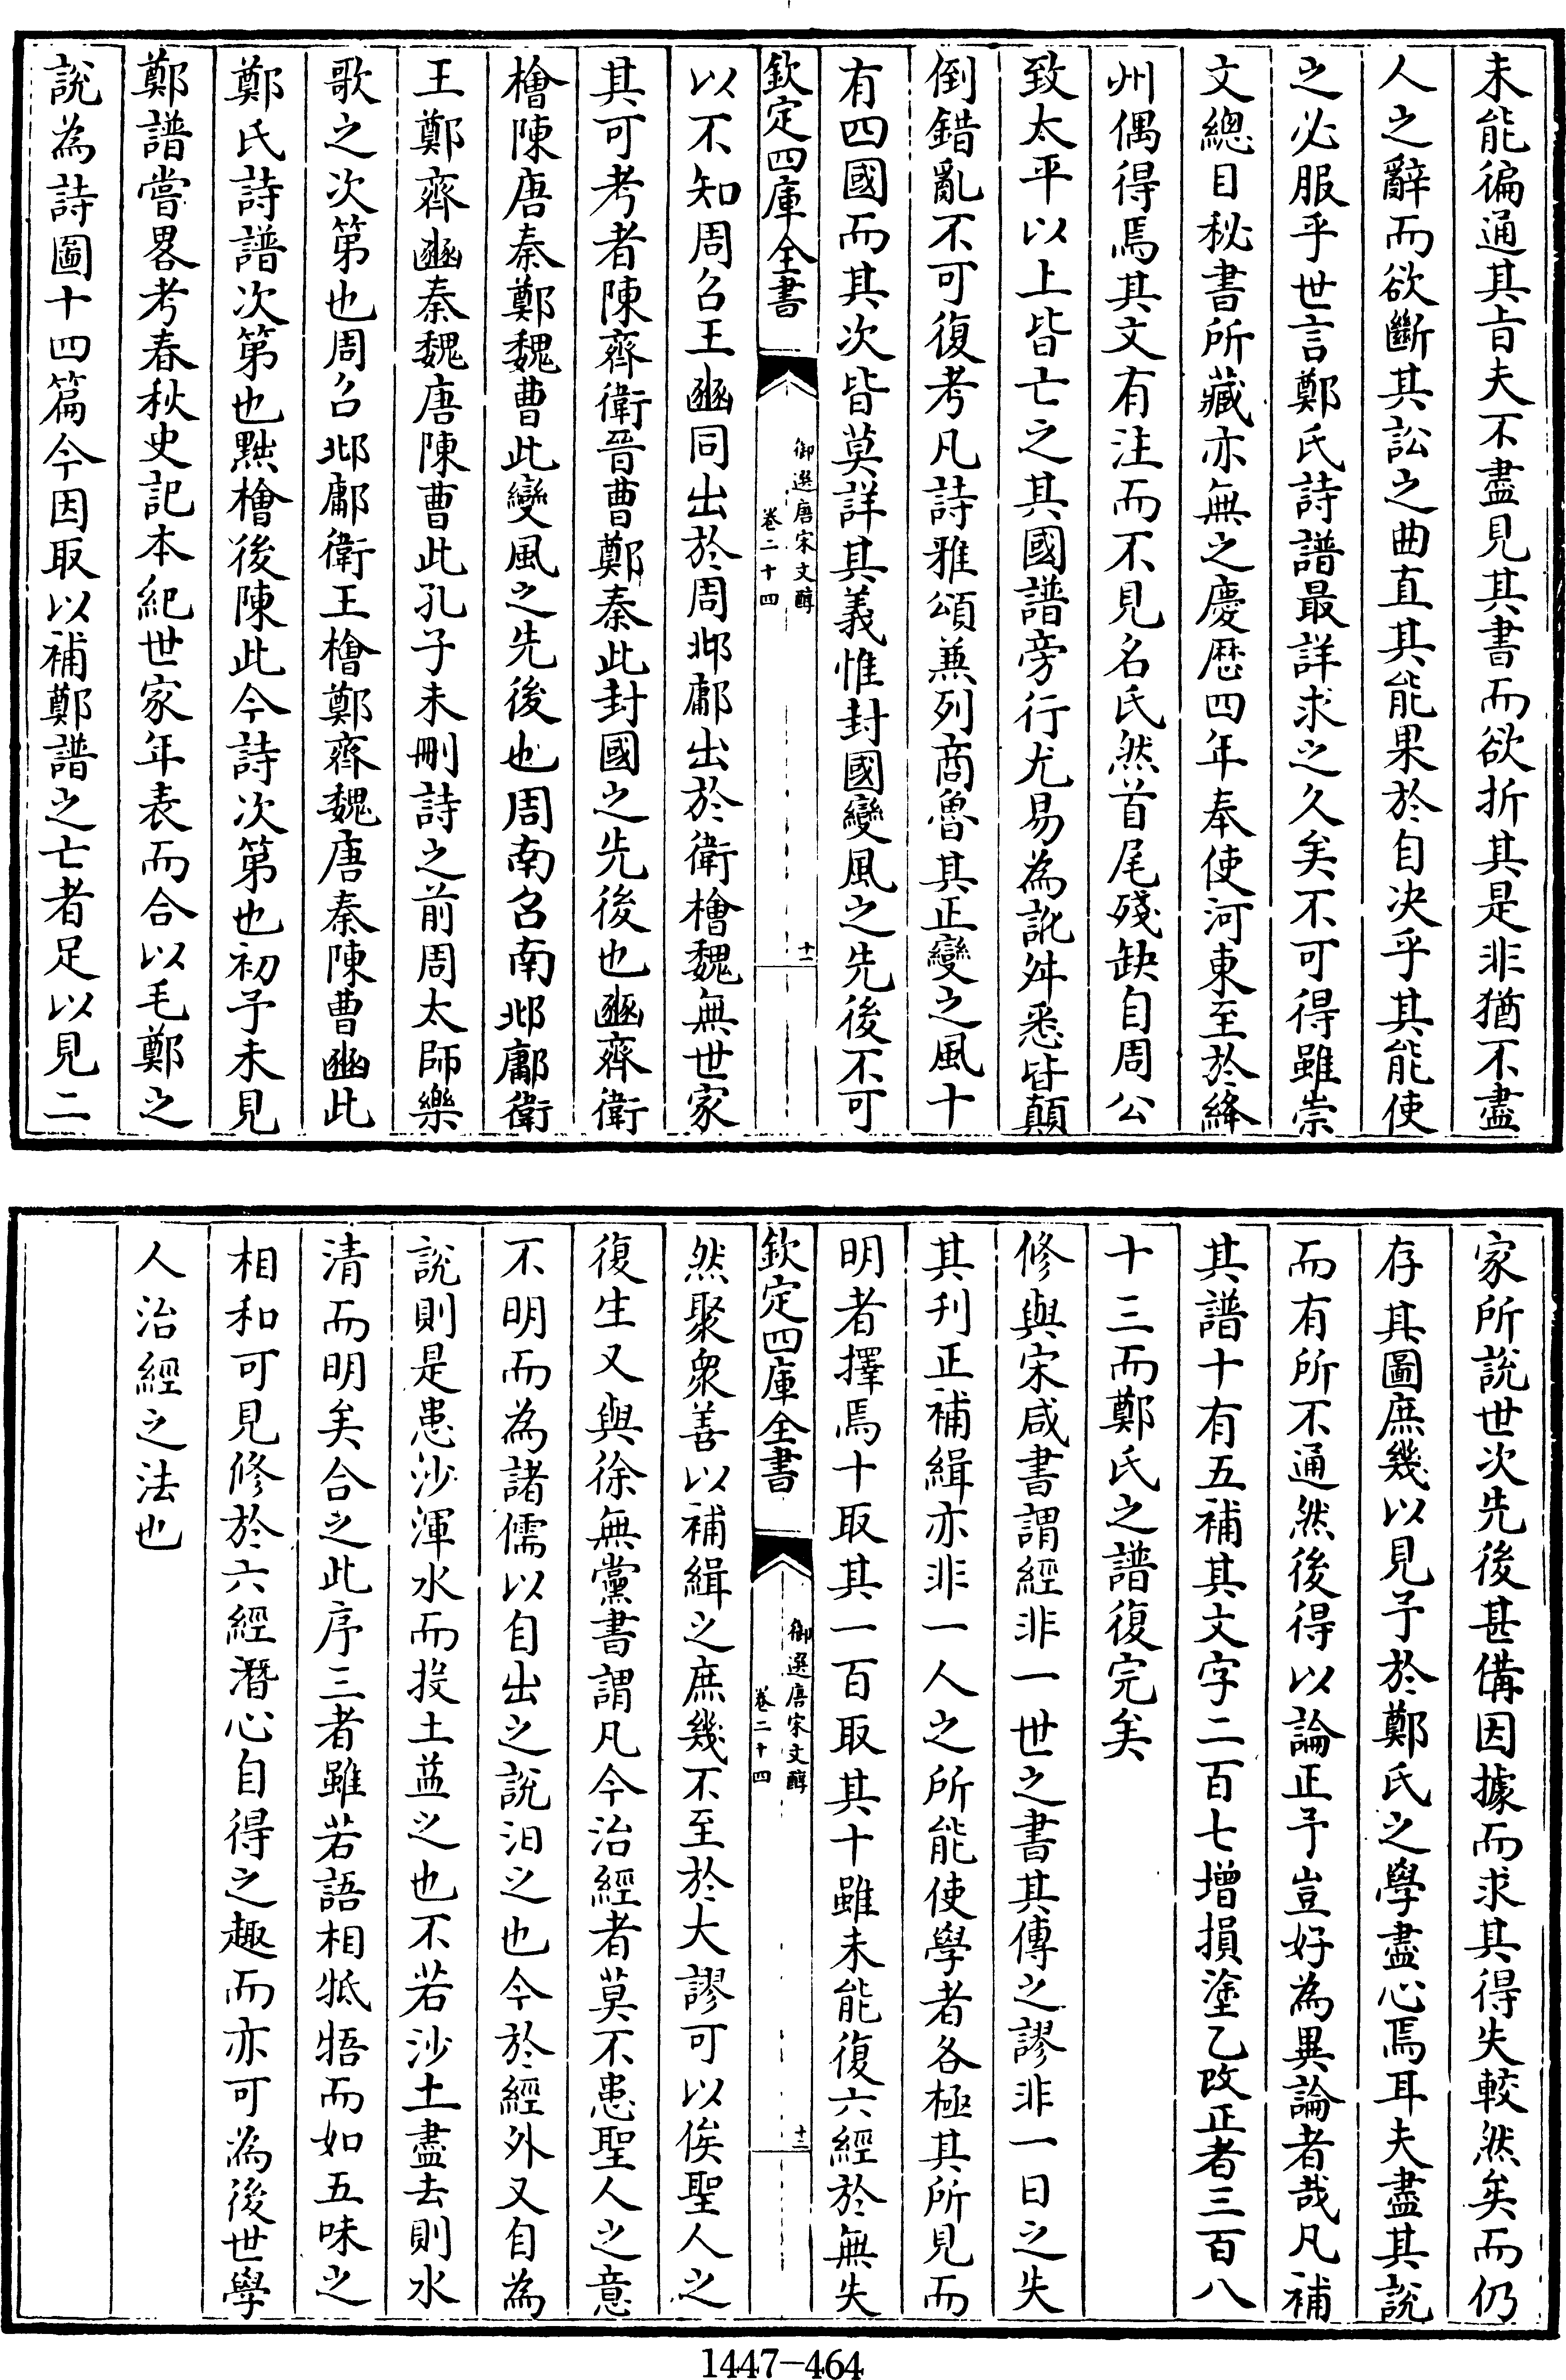 未能徧通其㫖夫不盡見其書而欲折其是非猶不盡
人之辭而欲斷其訟之曲直其能果於自決乎其能使
之必服乎世言鄭氏詩譜最詳求之久矣不可得雖崇
文總目秘書所藏亦無之慶歴四年奉使河東至於絳
州偶得焉其文有注而不見名氏然首尾殘缺自周公
致太平以上皆亡之其國譜旁行尤易為訛舛悉皆顛
倒錯亂不可復考凡詩雅頌兼列商魯其正變之風十
有四國而其次皆莫詳其義惟封國變風之先後不可
欽定四庫全書
御選唐宋文醇
卷二十四
十一
以不知周召王豳同出於周邶鄘出於衛檜魏無世家
其可考者陳齊衛晉曹鄭秦此封國之先後也豳齊衛
檜陳唐秦鄭魏曹此變風之先後也周南召南邶鄘衛
王鄭齊豳秦魏唐陳曹此孔子未刪詩之前周太師樂
歌之次第也周召邶鄘衛王檜鄭齊魏唐秦陳曹豳此
鄭氏詩譜次第也黜檜後陳此今詩次第也初予未見
鄭譜嘗畧考春秋史記本紀世家年表而合以毛鄭之
說為詩圖十四篇今因取以補鄭譜之亡者足以見二
家所說世次先後甚備因據而求其得失較然矣而仍
存其圖庶幾以見予於鄭氏之學盡心焉耳夫盡其說
而有所不通然後得以論正予豈好為異論者哉凡補
其譜十有五補其文字二百七增損塗乙改正者三百八
十三而鄭氏之譜復完矣
修與宋咸書謂經非一世之書其傳之謬非一日之失
其刋正補緝亦非一人之所能使學者各極其所見而
明者擇焉十取其一百取其十雖未能復六經於無失
欽定四庫全書
御選唐宋文醇
卷二十四
十二
然聚衆善以補緝之庶幾不至於大謬可以俟聖人之
復生又與徐無黨書謂凡今治經者莫不患聖人之意
不明而為諸儒以自出之說汨之也今於經外又自為
說則是患沙渾水而投土益之也不若沙土盡去則水
清而明矣合之此序三者雖若語相牴牾而如五味之
相和可見修於六經潛心自得之趣而亦可為後世學
人治經之法也
1447-464